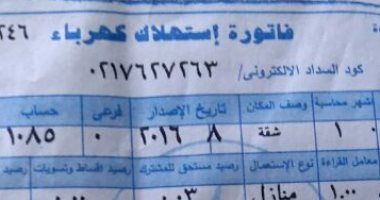 فاتورة إستهلاك كهرباء ٢٤٦
كود السداد الالكترونى/ ٠٢١٧٦٢٧٢٦٣
أشهر محاسبة وصف المكان تاريخ الإصدار فرعي حساب
١ ٠ شقة ٨ ٢٠١٦ ٠ ١٠٨٥
معامل القراءة نوع الإستعمال رصيد مستحق للمشترك رصيد اقساط وتسويات رصيد
١.٠٠ منازل